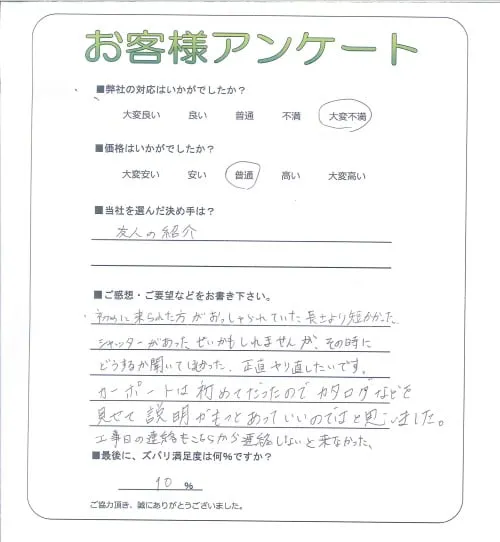 お客様アンケート
■弊社の対応はいかがでしたか？
大変良い 良い 普通 不満 大変不満
■価格はいかがでしたか？
大変安い 安い 普通 高い 大変高い
■当社を選んだ決め手は？
友人の紹介
■ご感想・ご要望などをお書き下さい。
初めに来られた方がおっしゃられていた長さより短かかった、
シャッターがあった、せいかもしれませんが、その時に
どうするか聞いてほしかった、正直やり直したいです。
カーポートは初めてだったのでカタログなどを
見せて説明がもっとあっていいのではと思いました。
工事日の連絡もこちらから連絡しないと来なかった、
■最後に、ズバリ満足度は何％ですか？
10 ％
ご協力頂き、誠にありがとうございました。